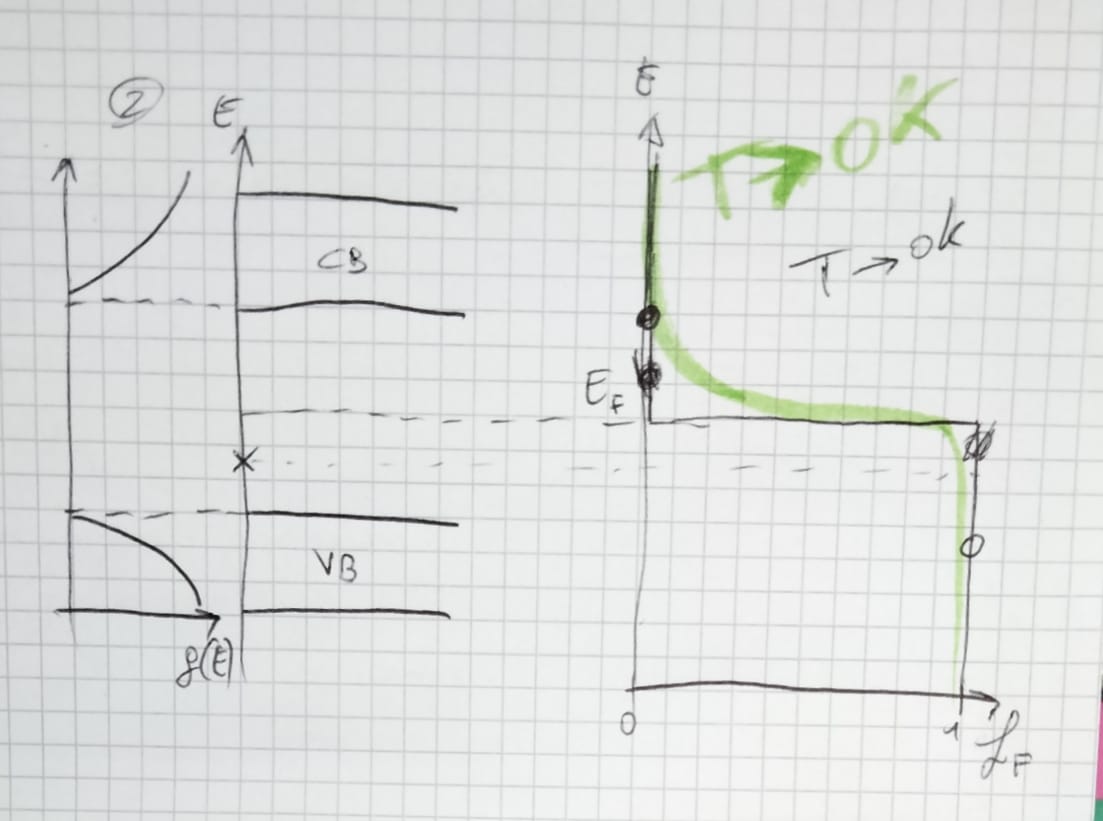 ②
E
CB
VB
g(E)
E
T → 0K
T → 0K
E_F
0
1
f_F